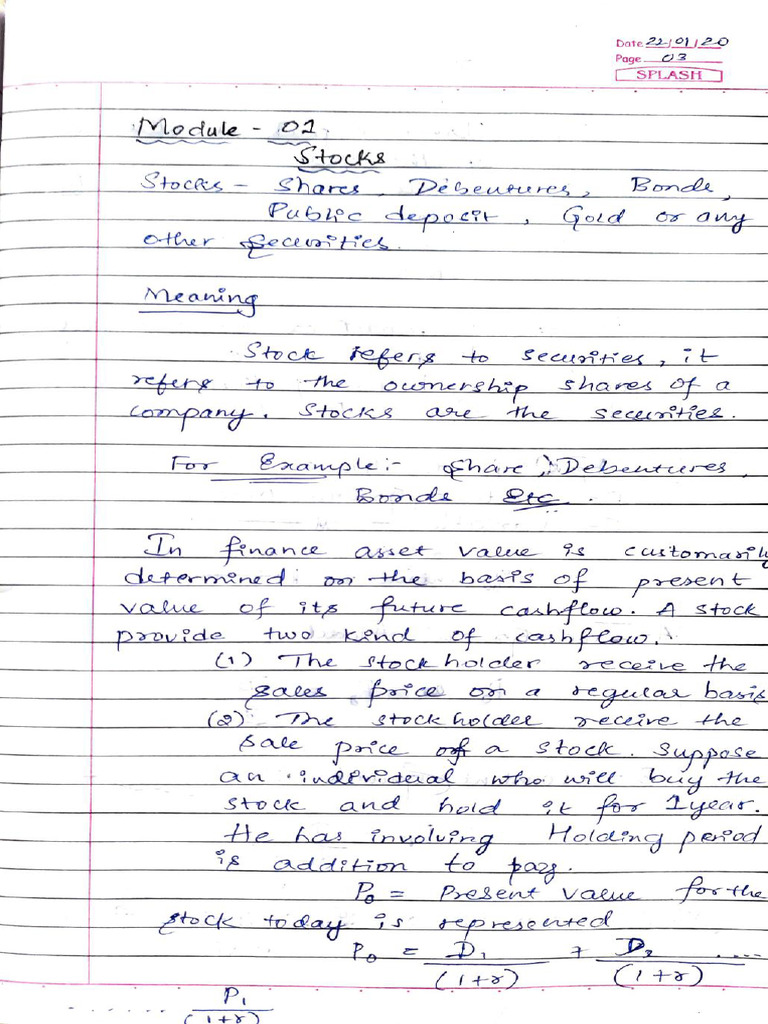 Date 22/01/20
Page 03
SPLASH
Module - 01
Stocks
Stocks - Shares, Debentures, Bonds,
Public deposit, Gold or any
other Securities.
Meaning
Stock refers to securities, it
refers to the ownership shares of a
company. Stocks are the securities.
For Example:- Share, Debentures,
Bonds Etc.
In finance asset value is customarily
determined on the basis of present
value of its future cashflow. A stock
provide two kind of cashflow.
(1) The stockholder receive the
sales price on a regular basis
(2) The stockholder receive the
sale price of a stock. Suppose
an individual who will buy the
stock and hold it for 1year.
He has involving Holding period
is addition to pay.
P₀ = Present value for the
stock today is represented
P₀ = D₁/(1+r) + D₂/(1+r) ....
....... P₁/(1+r)